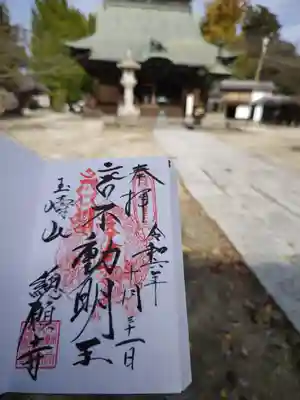 奉拝 令和二年十一月二十一日
不動明王
玉嶹山
總願寺